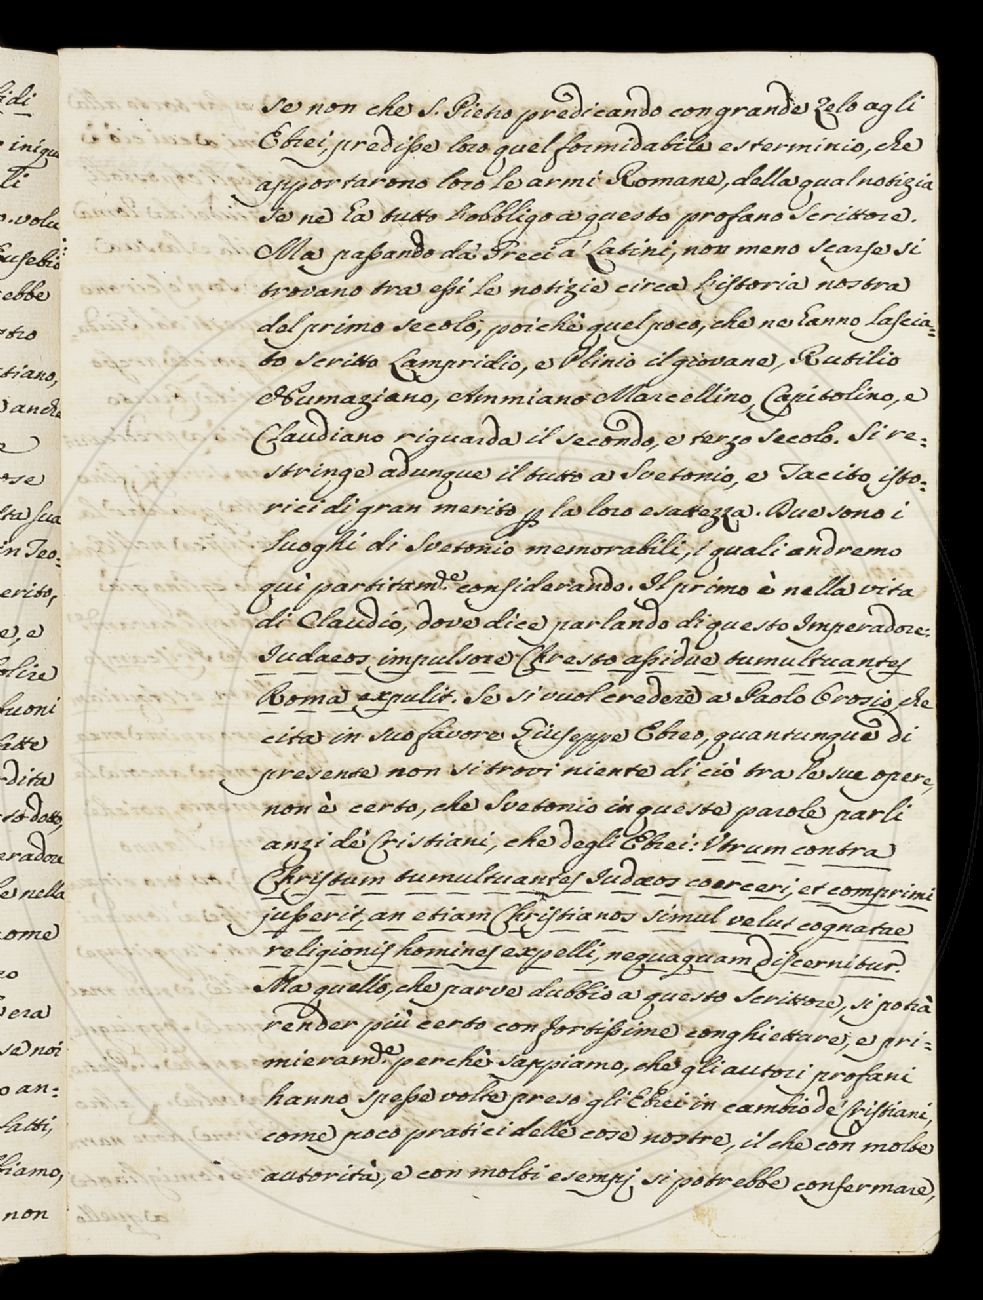 se non che S. Pietro predicando con grande zelo agli
Ebrei, predisse loro quel formidabile esterminio, che
apportarono loro le armi Romane, della qual notizia
se ne ha tutto l'obbligo a questo profano Scrittore.
Ma passando dà Greci á Latini, non meno scarse si
trovano tra essi le notizie circa l'istoria nostra
del primo secolo, poichè quel poco, che ne hanno lascia=
to scritto Lampridio, e Plinio il giovane, Rutilio
Numaziano, Ammiano Marcellino, Capitolino, e
Claudiano riguarda il secondo, e terzo secolo. Si re=
stringe adunque il tutto a Svetonio, e Tacito, isto=
rici di gran merito p la loro esattezza. Due sono i
luoghi di Svetonio memorabili, i quali andremo
quì partitam.de considerando. Il primo è nella vita
di Claudio, dove dice parlando di questo Imperadore:
Iudaeos impulsore Chresto assidue tumultuantes
Roma expulit. Se si vuol credere a Paolo Orosio, che
cita in suo favore Giuseppe Ebreo, quantunque di
presente non si trovi niente di ciò tra le sue opere,
non è certo, che Svetonio in queste parole parli
anzi dè Cristiani, che degli Ebrei: Utrum contra
Christum tumultuantes Iudæos coerceri, et comprimi
jusserit, an etiam Christianos simul velut cognatae
religionis homines expelli, nequaquam discernitur.
Ma quello, che parve dubbio a questo Scrittore, si potrà
render più certo con fortissime conghietture, e pri=
mieram.de perchè sappiamo, che gli autori profani
hanno spesse volte preso gli Ebrei in cambio dè Cristiani,
come poco pratici delle cose nostre, il che con molte
autorità, e con molti esempj si potrebbe confermare,